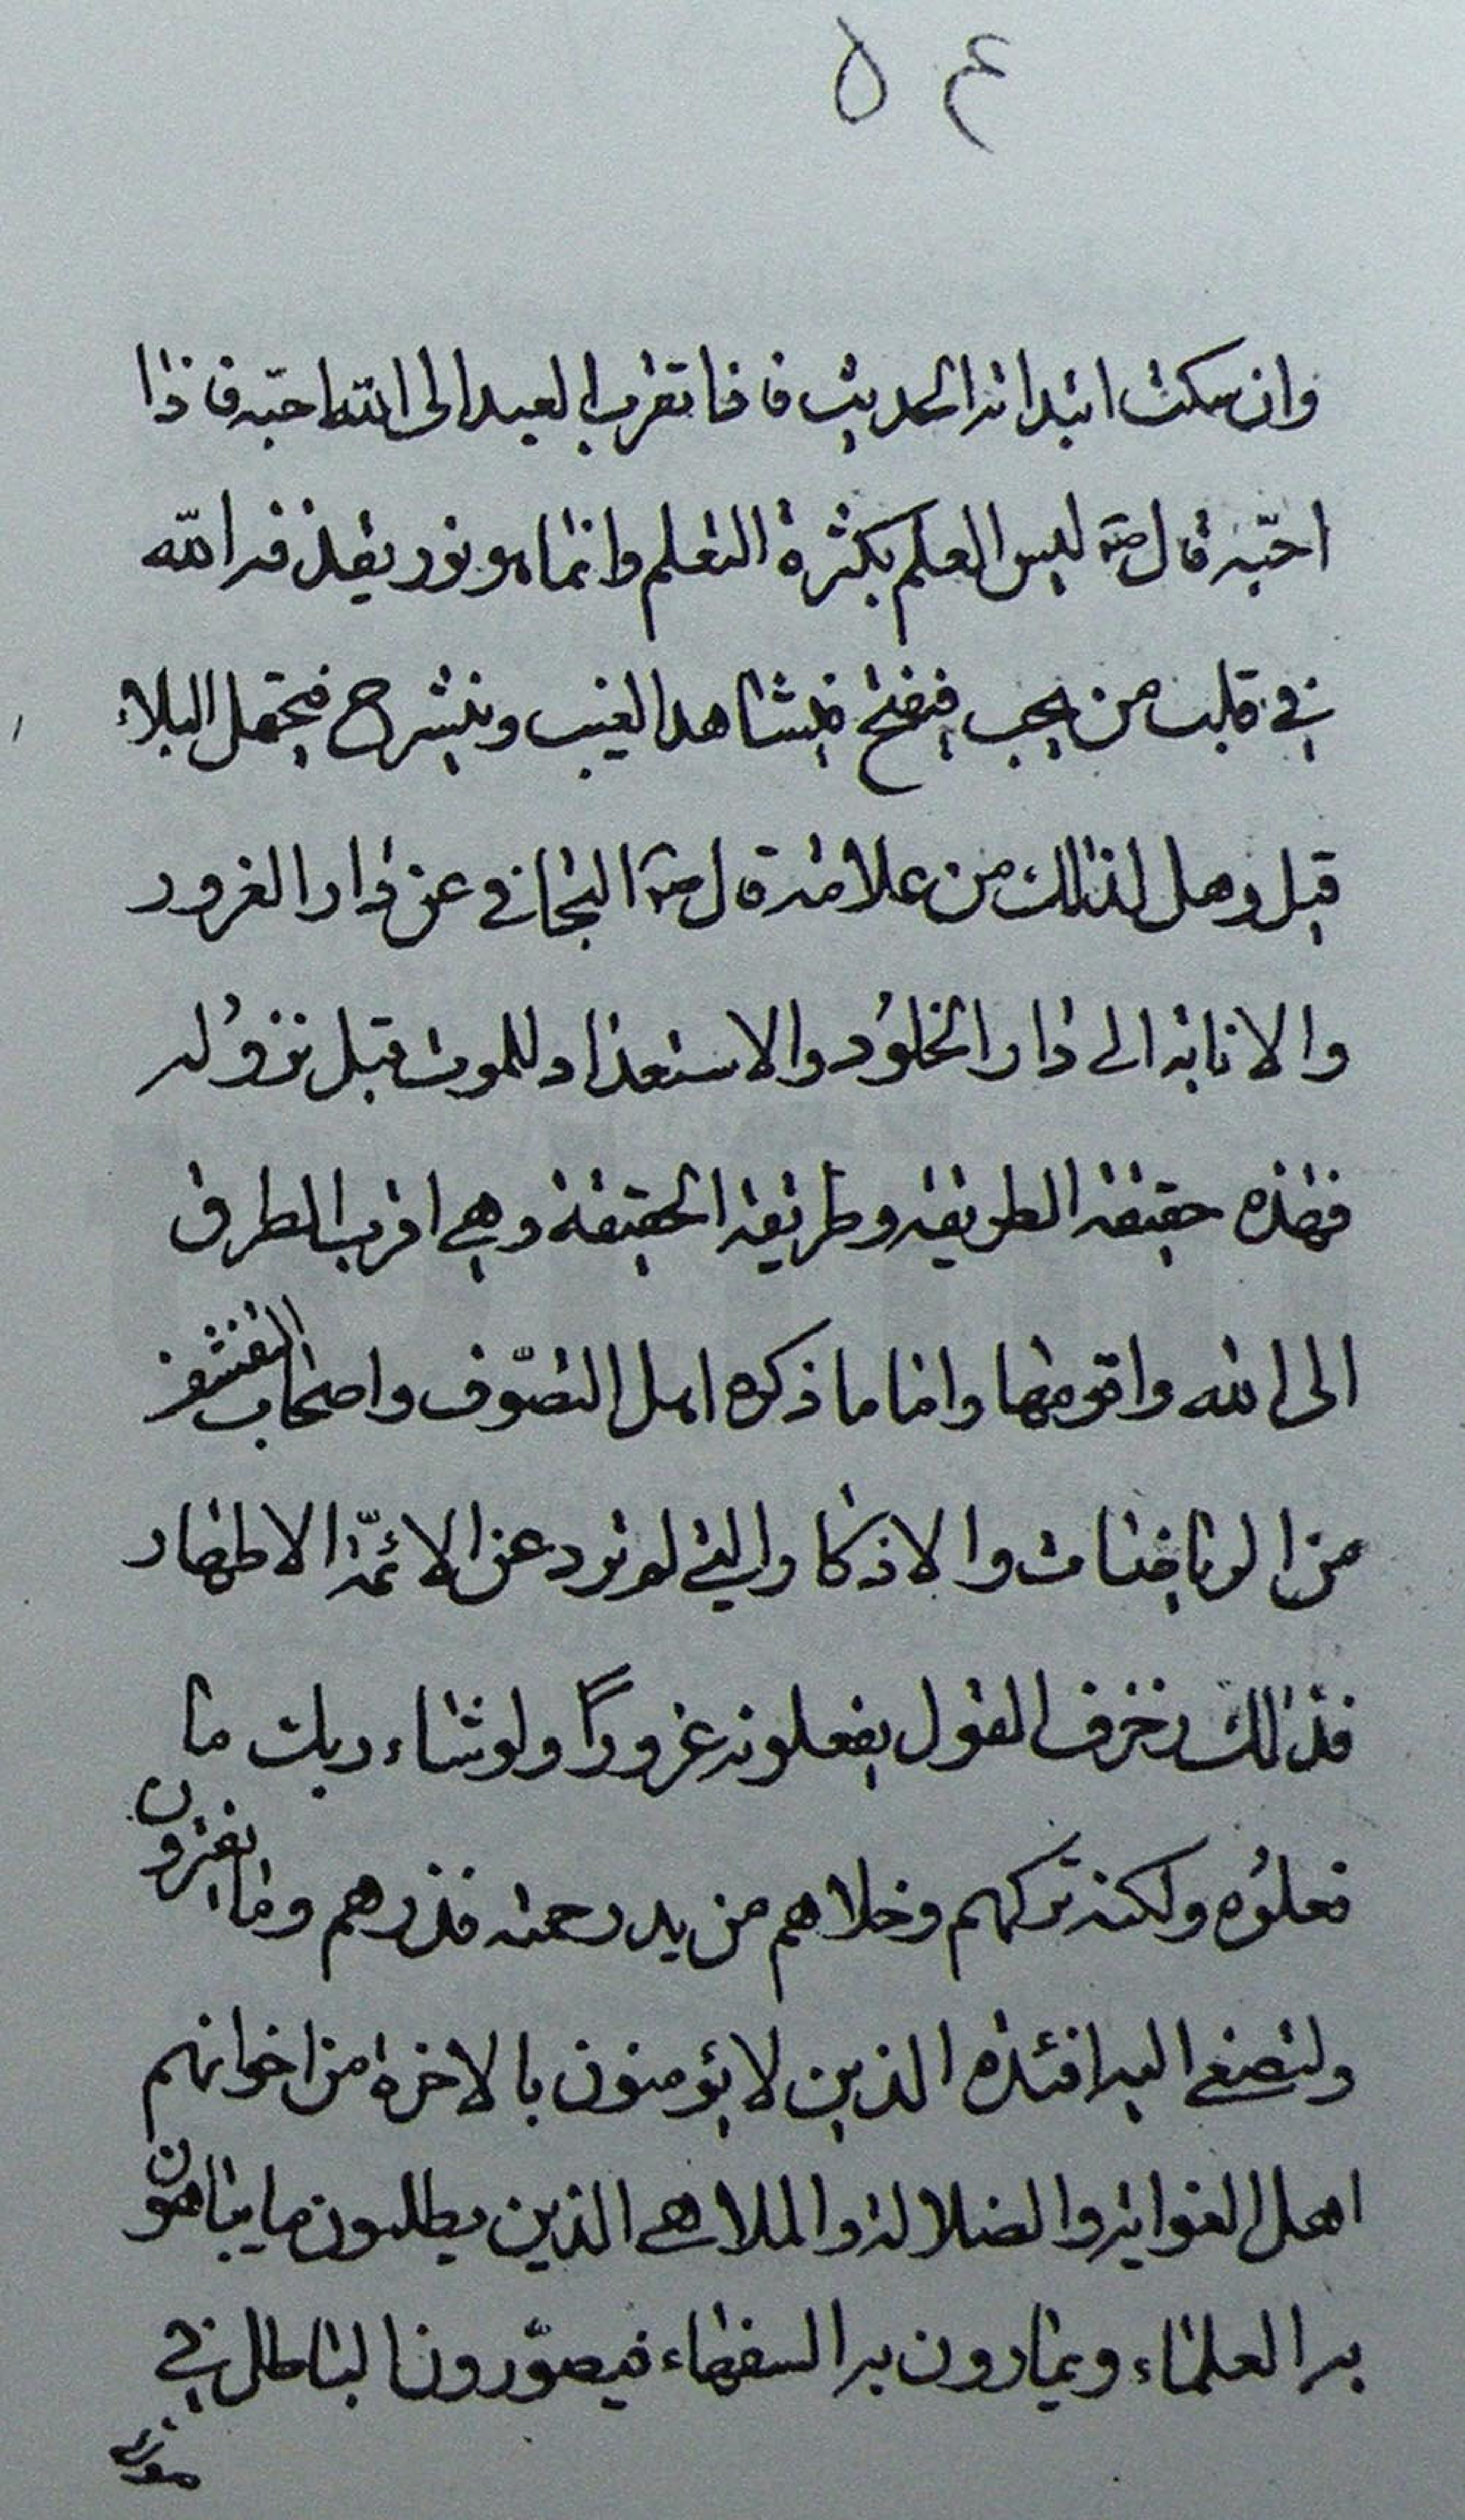 ۴۵
وان سكت ابتدائه الحديث فاذا تقرب العبد الى الله احبّه فاذا
احبّه قال ص ليس العلم بكثرة التعلم وانما هو نور يقذفه الله
في قلب من يحب فينفتح فيشاهد الغيب وينشرح فيحتمل البلاء
قيل وهل لذلك من علامة قال ص التجافي عن دار الغرور
والانابة الى دار الخلود والاستعداد للموت قبل نزوله
فهذه حقيقة الطريقة وطريقة الحقيقة وهي اقرب الطرق
الى الله واقومها واما ما ذكره اهل التصوّف واصحاب التقشف
من الرياضات والاذكار التي لم ترد عن الائمّة الاطهار
فذلك زخرف القول يفعلونه غروراً ولو شاء ربك ما
فعلوه ولكنه تركهم وخلاهم من يد رحمته فذرهم وما يفترون
ولتصغى اليه افئدة الذين لا يؤمنون بالاخرة من اخوانهم
اهل الغواية والضلالة والملاهي الذين يطلبون ما يباهون
به العلماء ويمارون به السفهاء فيصوّرون الباطل في
صورة